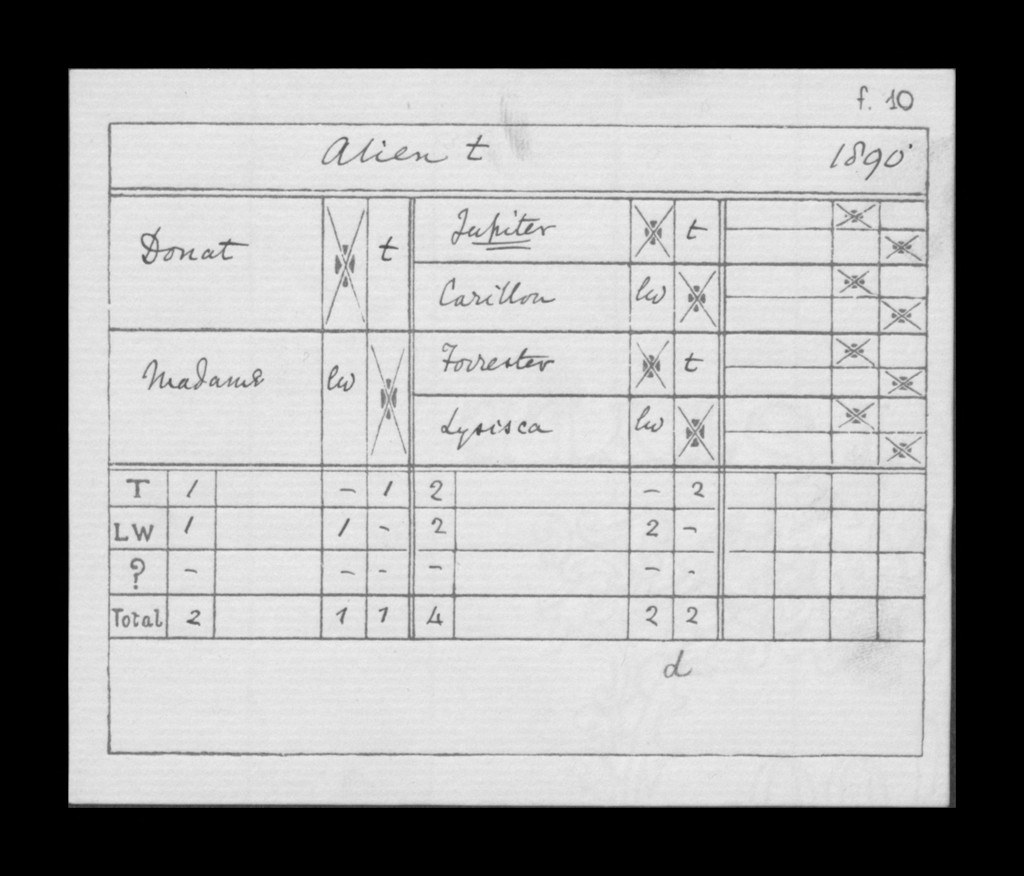 f. 10
Alien t 1890
Donat t Jupiter t
Carillon lw
Madame lw Forrester t
Lysisca lw
T 1 - 1 2 - 2
LW 1 1 - 2 2 -
? - - - - - -
Total 2 1 1 4 2 2
d